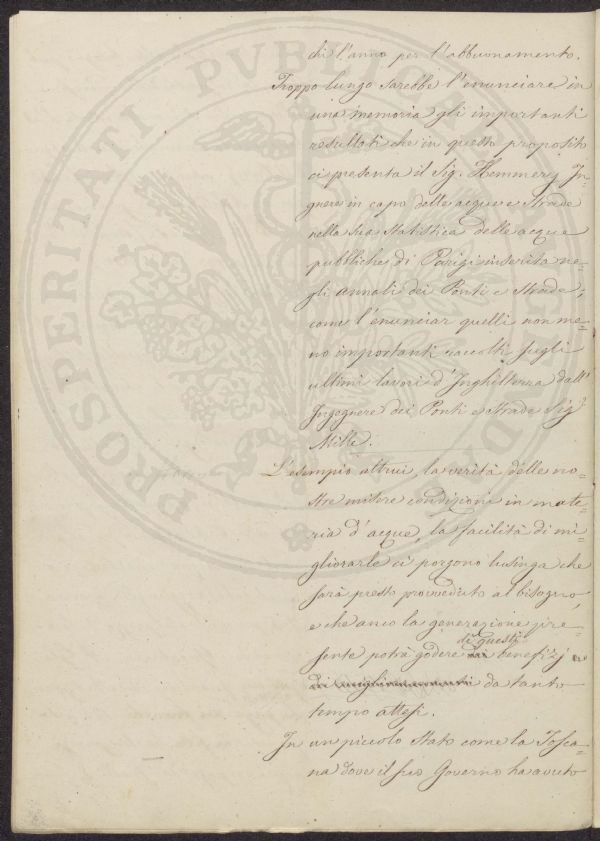 chi l'anno per l'abbuonamento.
Troppo lungo sarebbe l'enunciare in
una memoria gli importanti
resultati che in questo proposito
ci presenta il Sig. Hemmery In=
gnere in capo delle acque e Strade
nella sua Statistica delle acque
pubbliche di Parigi inserita ne=
gli annali dei Ponti e Strade;
come l'enunciar quelli non me=
no importanti raccolti sugli
ultimi lavori d'Inghilterra dall'
Ingegnere dei Ponti e Strade Sig.r
Mille.
L'esempio altrui, la verità delle no=
stre misere condizioni in mate=
ria d'acque, la facilità di mi=
gliorarle ci porgono lusinga che
sarà presto provveduto al bisogno,
e che anco la generazione pre=
di questi
sente potrà godere dei benefizj
da tanto
tempo attesi.
In un piccolo Stato come la Tosca=
na dove il suo Governo ha avuto
PROSPERITATI PUBLICAE